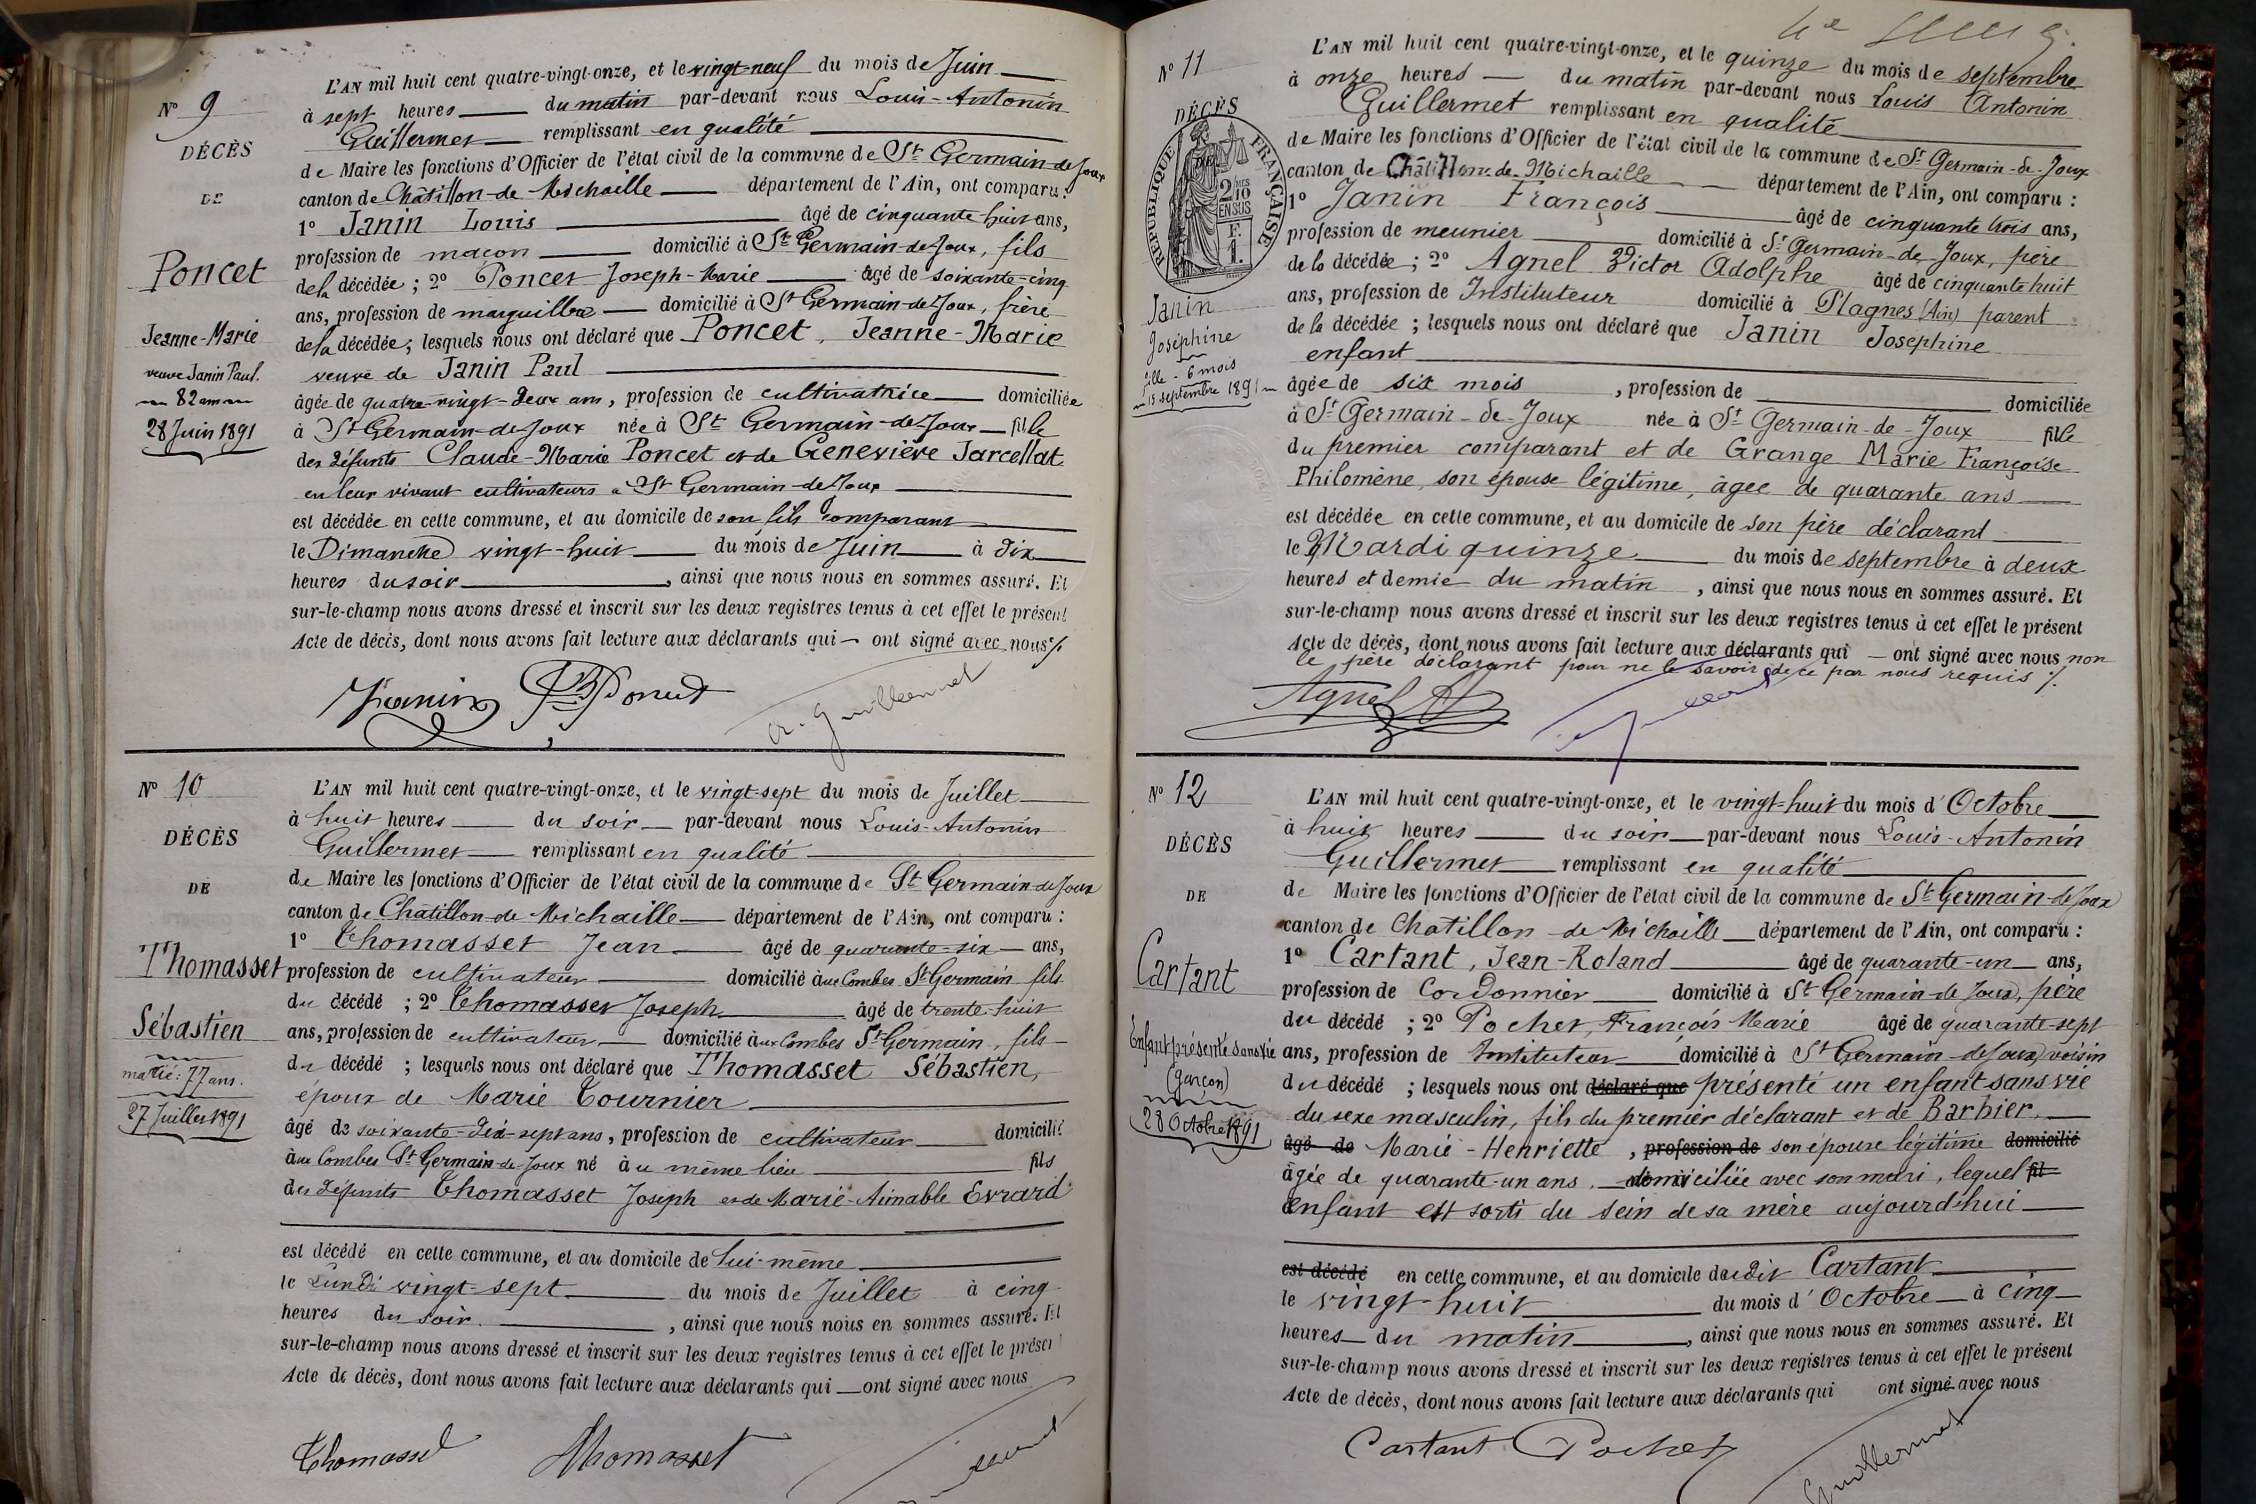 N° 9
DÉCÈS
DE
Poncet
Jeanne-Marie
veuve Janin Paul.
82 ans
28 Juin 1891
L'AN mil huit cent quatre-vingt-onze, et le vingt-neuf du mois de Juin
à sept heures du matin par-devant nous Louis-Antonin
Guillermet remplissant en qualité
de Maire les fonctions d'Officier de l'état civil de la commune de St Germain-de-Joux
canton de Châtillon-de-Michaille département de l'Ain, ont comparu :
1° Janin Louis âgé de cinquante-huit ans,
profession de maçon domicilié à St Germain-de-Joux, fils
de la décédée ; 2° Poncet Joseph-Marie âgé de soixante-cinq
ans, profession de marguillier domicilié à St Germain-de-Joux, frère
de la décédée ; lesquels nous ont déclaré que Poncet, Jeanne-Marie
veuve de Janin Paul
âgée de quatre-vingt-deux ans, profession de cultivatrice domiciliée
à St Germain-de-Joux née à St Germain-de-Joux fille
des défunts Claude-Marie Poncet et de Geneviève Jarcellat
en leur vivant cultivateurs à St Germain-de-Joux
est décédée en cette commune, et au domicile de son fils comparant
le Dimanche vingt-huit du mois de Juin à dix
heures du soir, ainsi que nous nous en sommes assuré. Et
sur-le-champ nous avons dressé et inscrit sur les deux registres tenus à cet effet le présent
Acte de décès, dont nous avons fait lecture aux déclarants qui ont signé avec nous ./.
Janin Poncet A. Guillermet
N° 10
DÉCÈS
DE
Thomasset
Sébastien
marié : 77 ans.
27 Juillet 1891
L'AN mil huit cent quatre-vingt-onze, et le vingt-sept du mois de Juillet
à huit heures du soir par-devant nous Louis-Antonin
Guillermet remplissant en qualité
de Maire les fonctions d'Officier de l'état civil de la commune de St Germain-de-Joux
canton de Châtillon-de-Michaille département de l'Ain, ont comparu :
1° Thomasset Jean âgé de quarante-six ans,
profession de cultivateur domicilié aux Combes St Germain fils
du décédé ; 2° Thomasset Joseph âgé de trente-huit
ans, profession de cultivateur domicilié aux Combes St Germain, fils
du décédé ; lesquels nous ont déclaré que Thomasset Sébastien,
époux de Marie Tournier
âgé de soixante-dix-sept ans, profession de cultivateur domicilié
aux Combes St Germain-de-Joux né au même lieu fils
des défunts Thomasset Joseph et de Marie-Aimable Evrard
est décédé en cette commune, et au domicile de lui-même
le Lundi vingt-sept du mois de Juillet à cinq
heures du soir, ainsi que nous nous en sommes assuré. Et
sur-le-champ nous avons dressé et inscrit sur les deux registres tenus à cet effet le présent
Acte de décès, dont nous avons fait lecture aux déclarants qui ont signé avec nous
Thomasset Thomasset
N° 11
DÉCÈS
DE
RÉPUBLIQUE FRANÇAISE
2/10 MES
EN SUS
F.
1.
Janin
Joséphine
fille - 6 mois
15 septembre 1891
L'AN mil huit cent quatre-vingt-onze, et le quinze du mois de septembre
à onze heures du matin par-devant nous Louis Antonin
Guillermet remplissant en qualité
de Maire les fonctions d'Officier de l'état civil de la commune de St Germain-de-Joux
canton de Châtillon-de-Michaille département de l'Ain, ont comparu :
1° Janin François âgé de cinquante trois ans,
profession de meunier domicilié à St Germain-de-Joux, père
de la décédée ; 2° Agnel Victor Adolphe âgé de cinquante huit
ans, profession de Instituteur domicilié à Plagnes (Ain) parent
de la décédée ; lesquels nous ont déclaré que Janin Josephine
enfant
âgée de six mois, profession de domiciliée
à St Germain-de-Joux née à St Germain-de-Joux fille
du premier comparant et de Grange Marie Françoise
Philomène, son épouse légitime, âgée de quarante ans
est décédée en cette commune, et au domicile de son père déclarant
le Mardi quinze du mois de septembre à deux
heures et demie du matin, ainsi que nous nous en sommes assuré. Et
sur-le-champ nous avons dressé et inscrit sur les deux registres tenus à cet effet le présent
Acte de décès, dont nous avons fait lecture aux déclarants qui ont signé avec nous non
le père déclarant pour ne le savoir de ce par nous requis ./.
Agnel
N° 12
DÉCÈS
DE
Cartant
Enfant présenté sans vie
(garçon)
28 Octobre 1891
L'AN mil huit cent quatre-vingt-onze, et le vingt-huit du mois d'Octobre
à huit heures du soir par-devant nous Louis-Antonin
Guillermet remplissant en qualité
de Maire les fonctions d'Officier de l'état civil de la commune de St Germain-de-Joux
canton de Chatillon-de-Michaille département de l'Ain, ont comparu :
1° Cartant, Jean-Roland âgé de quarante-un ans,
profession de Cordonnier domicilié à St Germain-de-Joux, père
du décédé ; 2° Pochet, François Marie âgé de quarante-sept
ans, profession de Instituteur domicilié à St Germain-de-Joux, voisin
du décédé ; lesquels nous ont déclaré que présenté un enfant sans vie
du sexe masculin, fils du premier déclarant et de Barbier,
âgé de Marie-Henriette, profession de son épouse légitime domicilié
âgée de quarante-un ans, domiciliée avec son mari, lequel fil
enfant est sorti du sein de sa mère aujourd'hui
est décédé en cette commune, et au domicile dudit Cartant
le vingt-huit du mois d'Octobre à cinq
heures du matin, ainsi que nous nous en sommes assuré. Et
sur-le-champ nous avons dressé et inscrit sur les deux registres tenus à cet effet le présent
Acte de décès, dont nous avons fait lecture aux déclarants qui ont signé avec nous
Cartant Pochet Guillermet